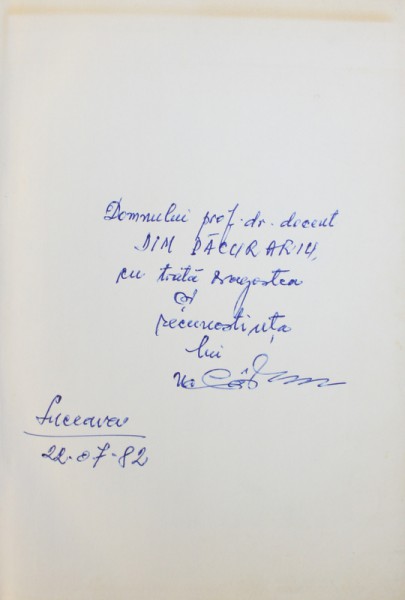 Domnului prof. dr. docent
DIM PĂCURARIU,
cu toată dragostea
și
recunoștința
lui
Suceava
22-07-82